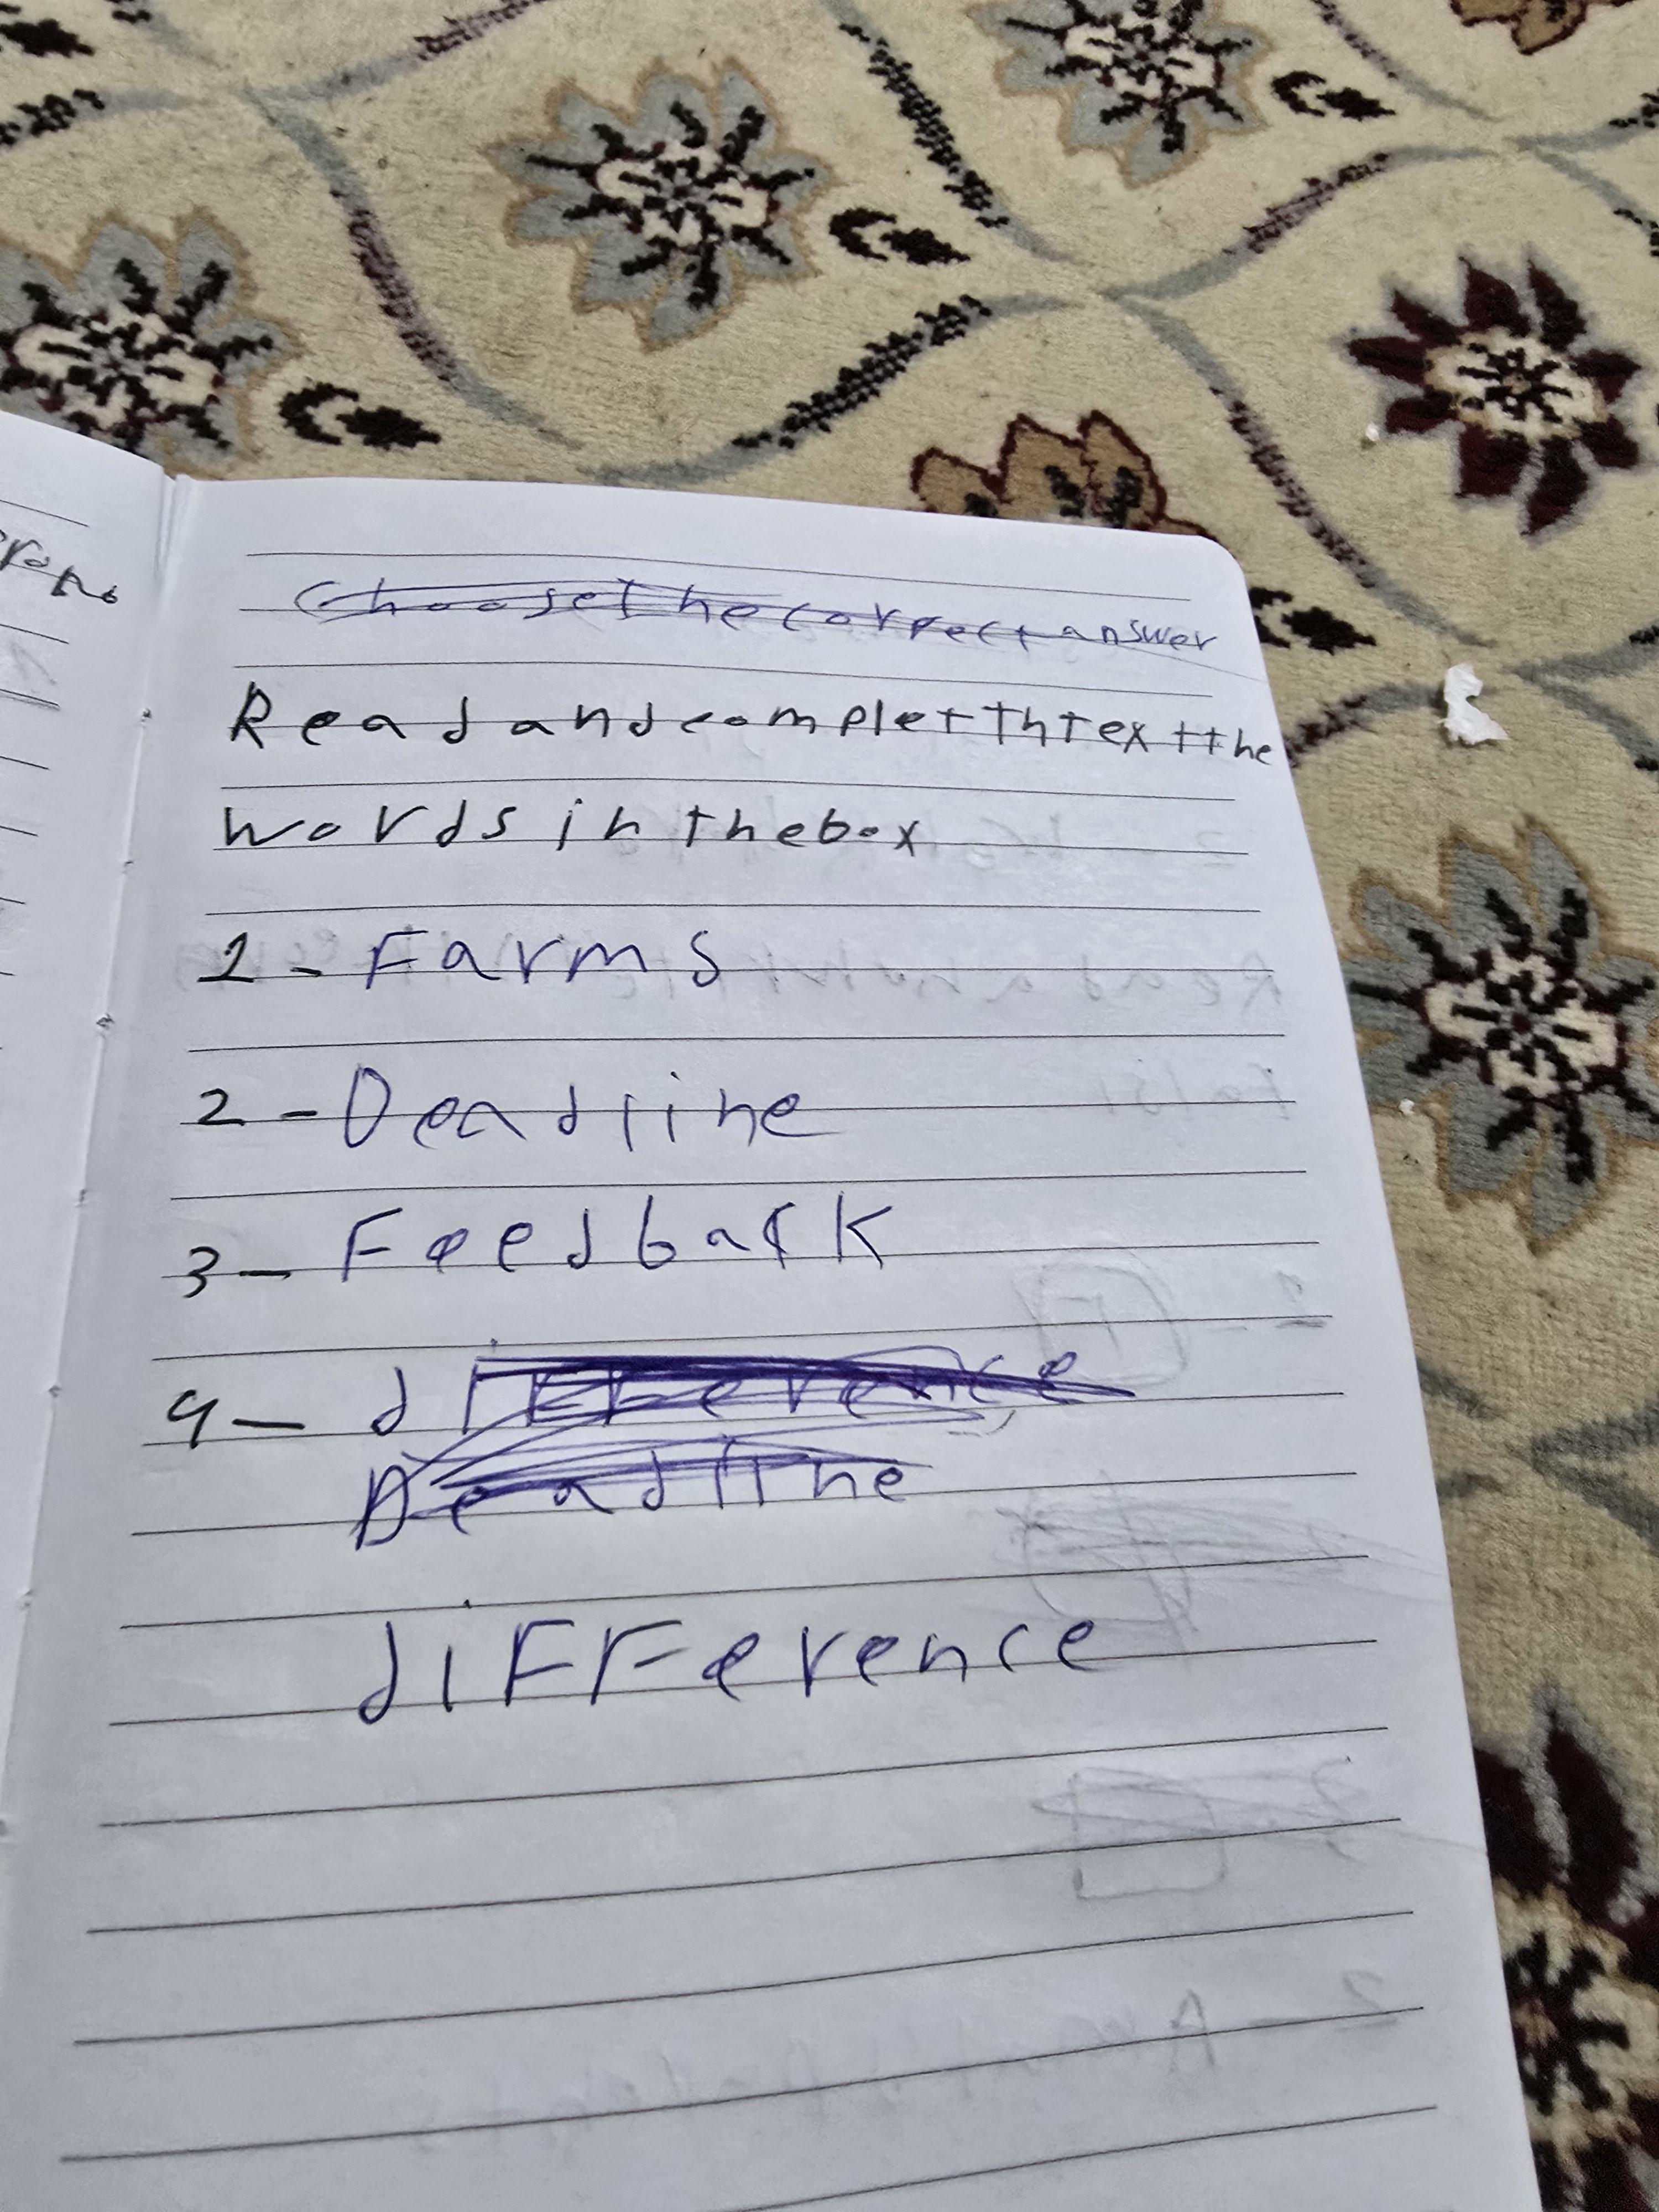 Choose The correct answer
Read and complet Th text the
words in the box
1 - Farms
2 - Deadline
3 - Feedback
4 - difference
Deadline
difference